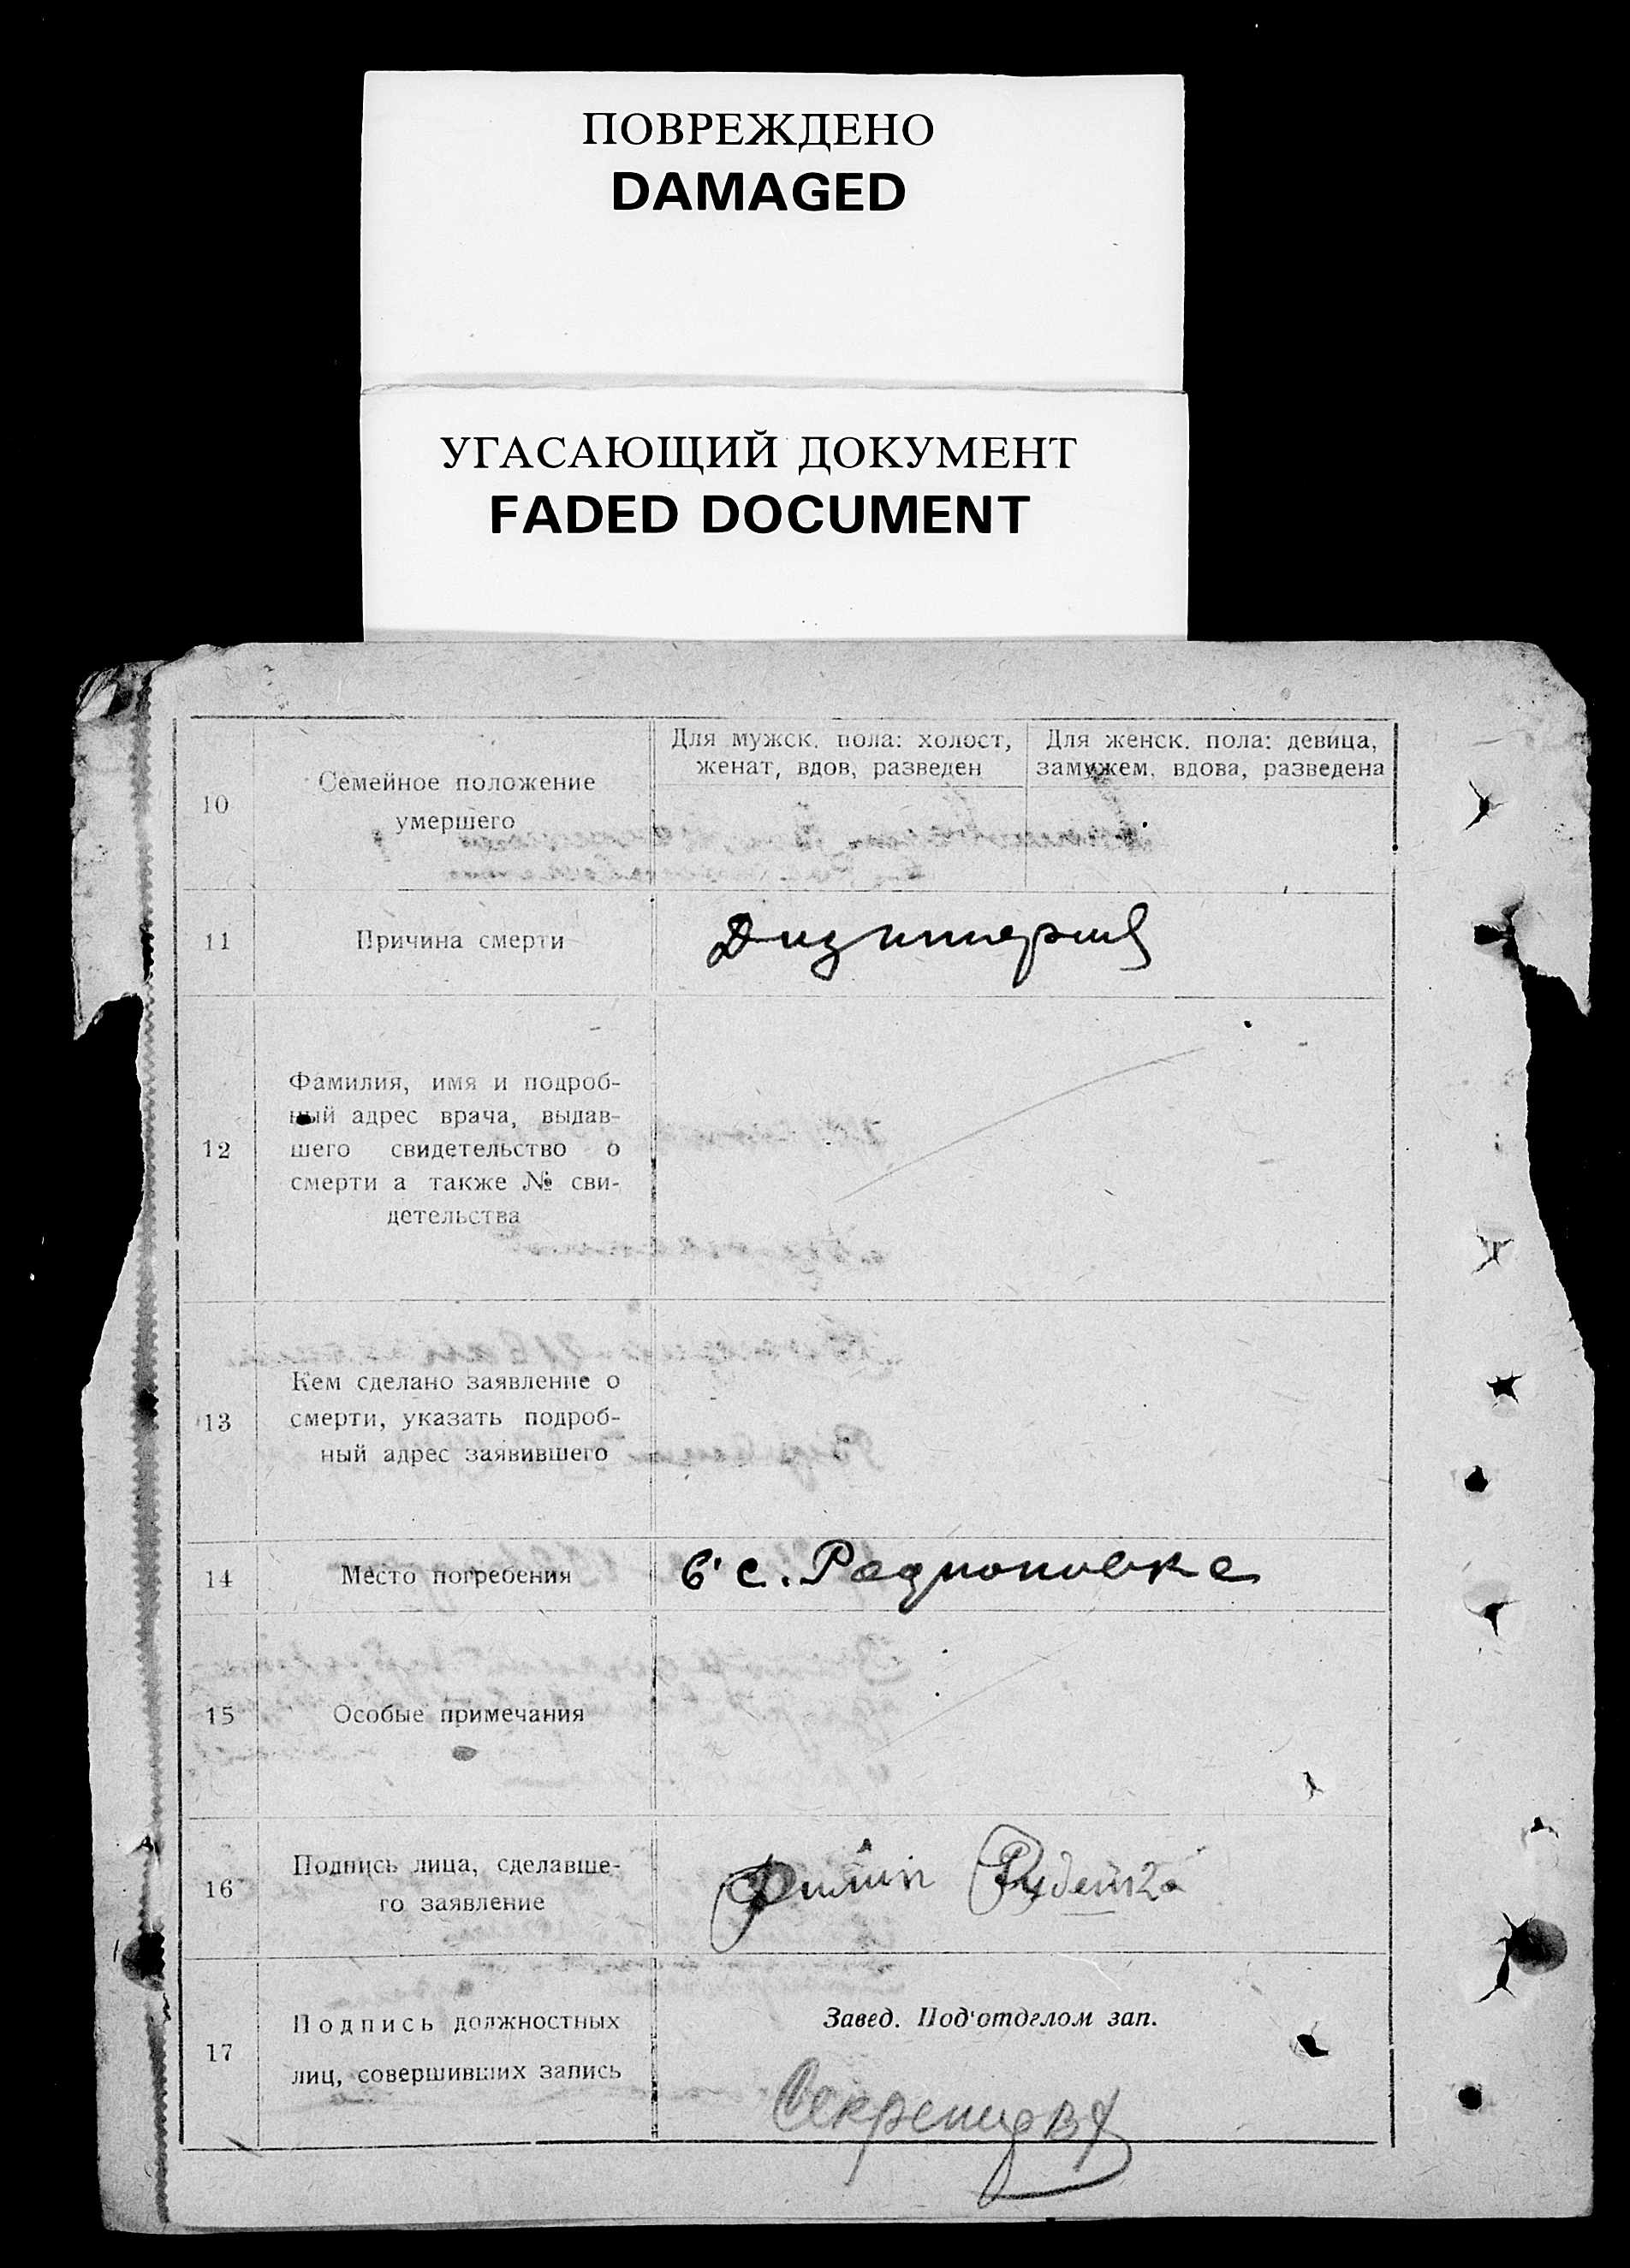 ПОВРЕЖДЕНО
DAMAGED
УГАСАЮЩИЙ ДОКУМЕНТ
FADED DOCUMENT
Для мужск. пола: холост,
женат, вдов, разведен
Для женск. пола: девица,
замужем, вдова, разведена
10
Семейное положение
умершего
11
Причина смерти
Дизинтерия
12
Фамилия, имя и подроб-
ный адрес врача, выдав-
шего свидетельство о
смерти а также № сви-
детельства
13
Кем сделано заявление о
смерти, указать подроб-
ный адрес заявившего
14
Место погребения
в с. Радионовке
15
Особые примечания
16
Подпись лица, сделавше-
го заявление
17
Подпись должностных
лиц, совершивших запись
Завед. Под'отделом зап.